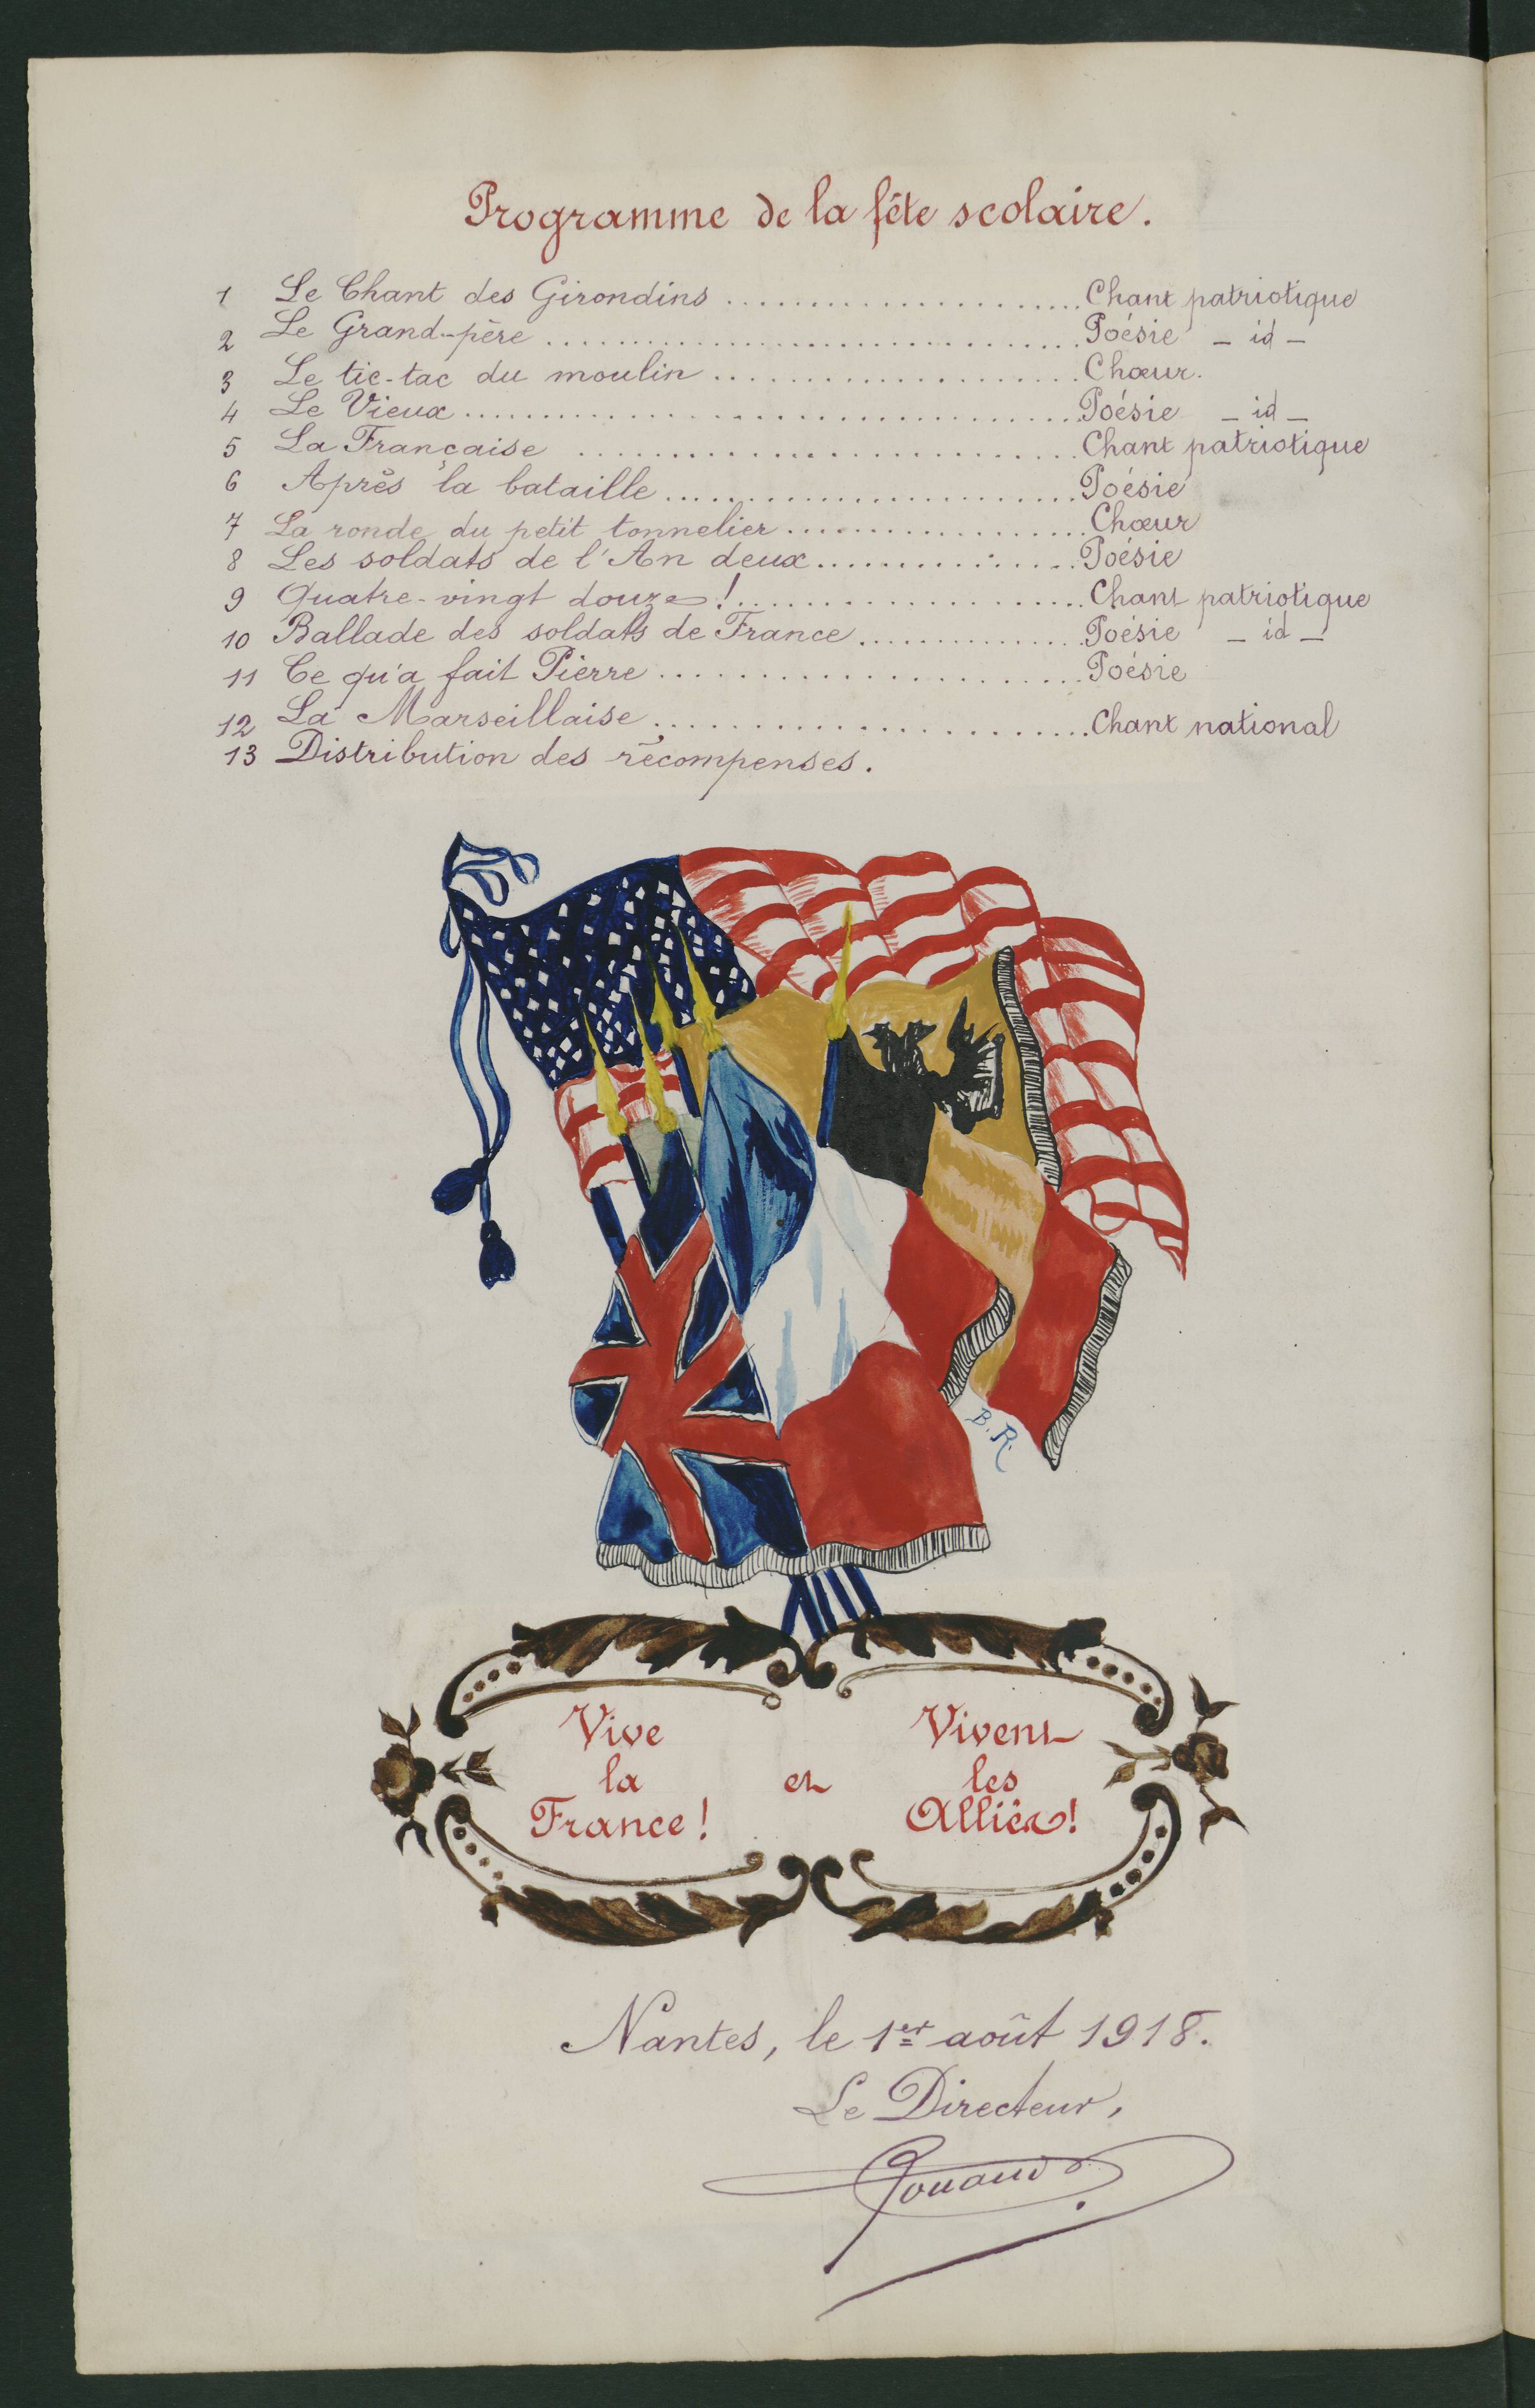 Programme de la fête scolaire.
1 Le Chant des Girondins ........................ Chant patriotique
2 Le Grand-père ........................ Poésie – id –
3 Le tic-tac du moulin ........................ Chœur.
4 Le Vieux ........................ Poésie – id –
5 La Française ........................ Chant patriotique
6 Après la bataille ........................ Poésie
7 La ronde du petit tonnelier ........................ Chœur
8 Les soldats de l'An deux ........................ Poésie
9 Quatre-vingt douze! ........................ Chant patriotique
10 Ballade des soldats de France ........................ Poésie – id –
11 Ce qu'a fait Pierre ........................ Poésie
12 La Marseillaise ........................ Chant national
13 Distribution des récompenses.
B. R.
Vive
la
France!
et
Vivent
les
Alliés!
Nantes, le 1er août 1918.
Le Directeur,